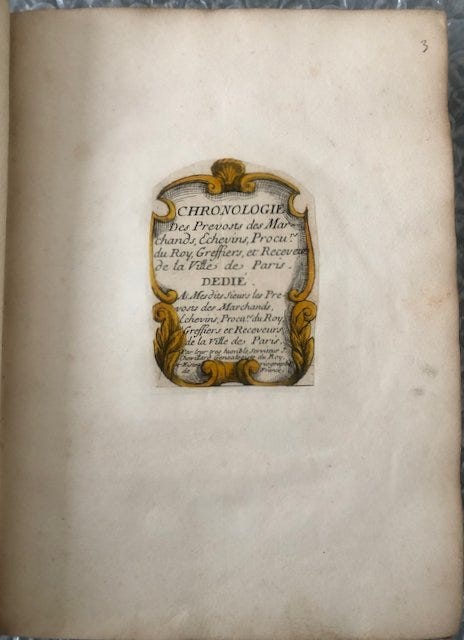 3
CHRONOLOGIE
Des Prevosts des Mar-
chands, Echevins, Procu.rs
du Roy, Greffiers, et Receveurs
de la Ville de Paris.
DEDIÉ.
A Mesdits sieurs les Pre-
vosts des Marchands,
Echevins, Procu.rs du Roy
Greffiers et Receveurs
de la Ville de Paris.
Par leur tres humble Serviteur J.
Chevillard Genealogiste du Roy,
et Histo riographe
de France.